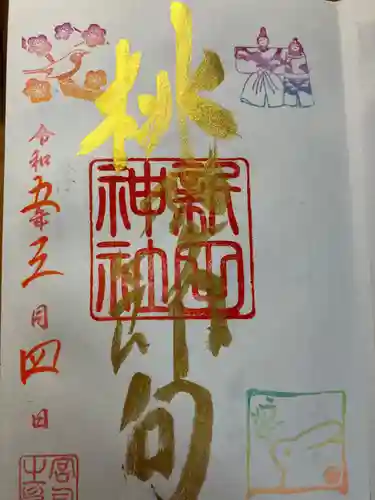 桃の節句
新田神社
令和五年三月四日
宮司之印